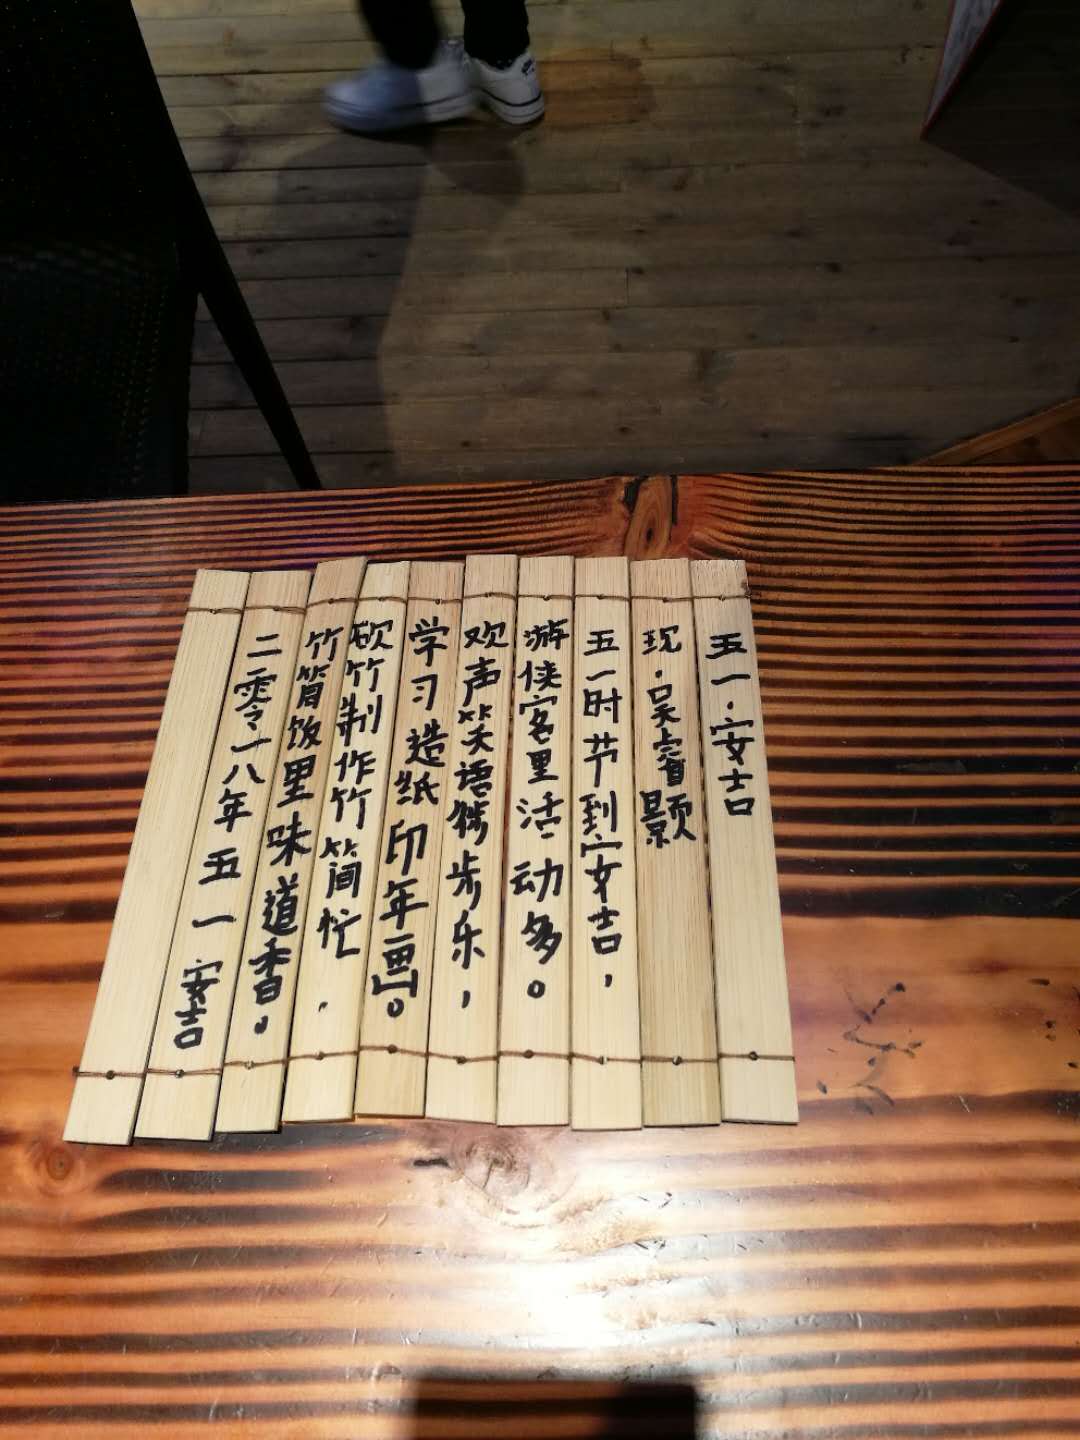 五一·安吉
现·吴睿颢
五一时节到安吉，
游侠客里活动多。
欢声笑语伴步乐，
学习造纸印年画。
砍竹制作竹简忙，
竹筒饭里味道香。
二零一八年五一安吉